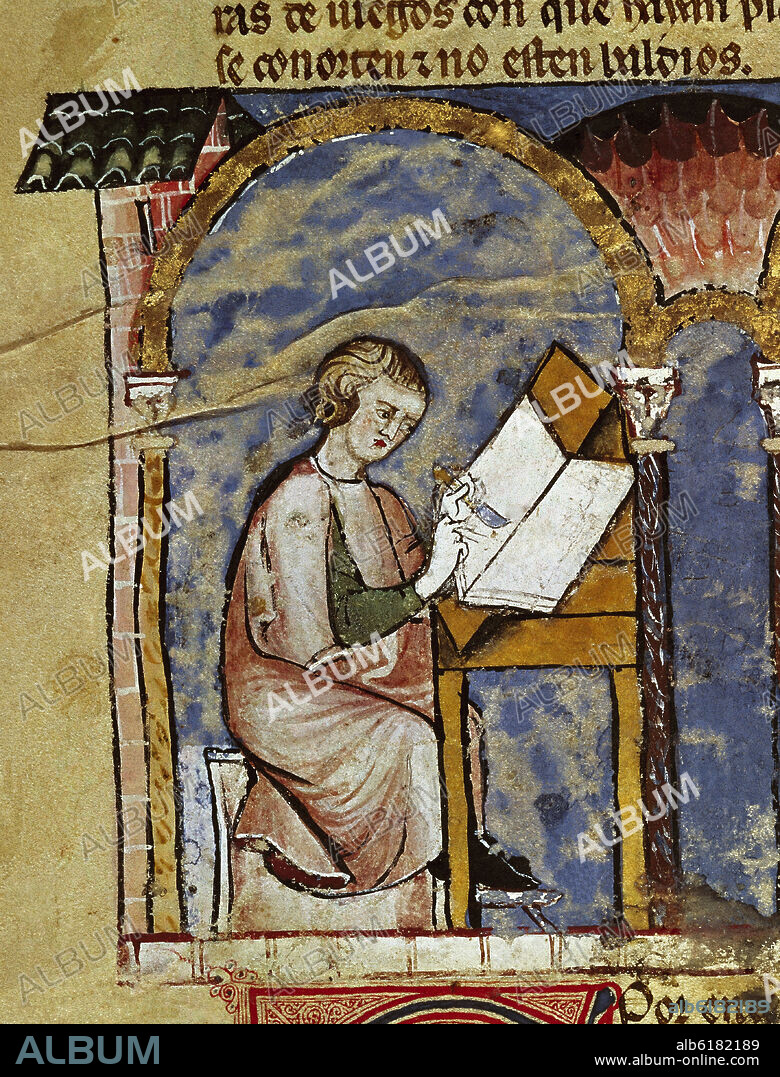 ras de iuegos con que hayan pl
se conorten ⁊ no esten baldios.
Por en
alb6182189
ALBUM
alb6182189
www.album-online.com